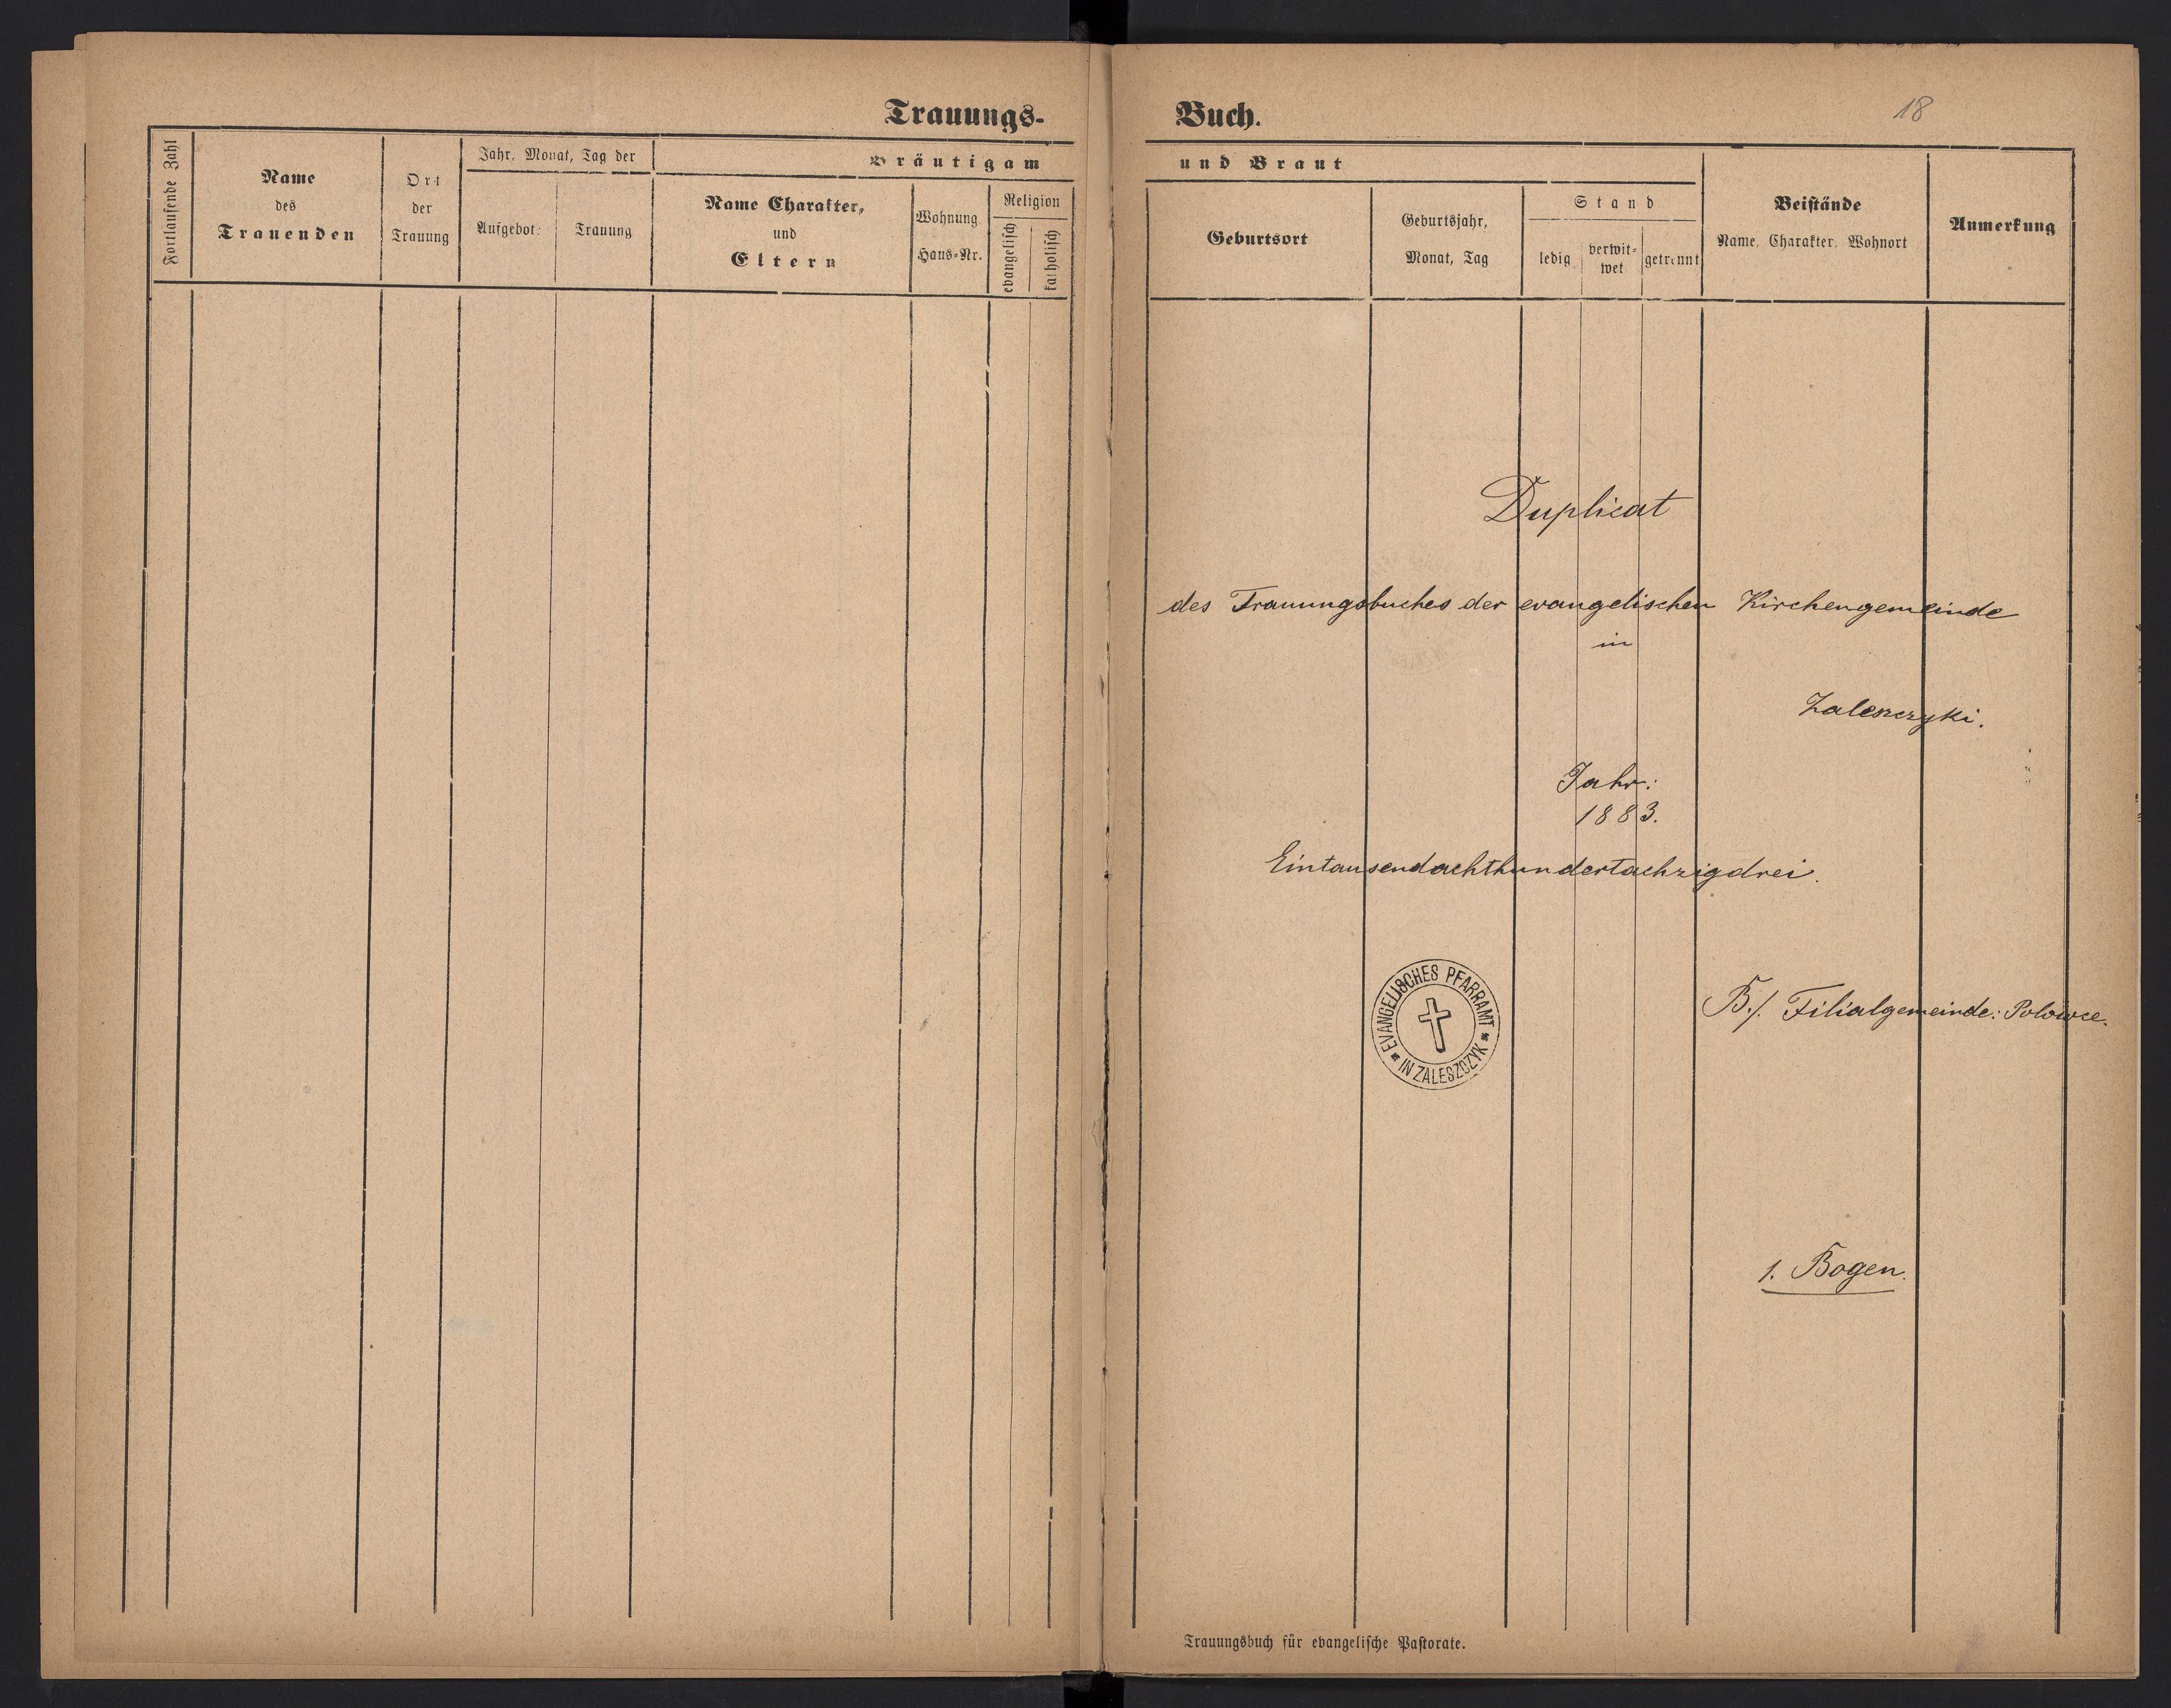 Trauungs-
Fortlaufende Zahl
Name
des
Trauenden
Ort
der
Trauung
Jahr, Monat, Tag der
Aufgebot
Trauung
Bräutigam
Name Charakter,
und
Eltern
Wohnung
Haus-Nr.
Religion
evangelisch
katholisch
Buch.
18
und Braut
Geburtsort
Geburtsjahr,
Monat, Tag
Stand
ledig
verwit-
wet
getrennt
Beistände
Name, Charakter, Wohnort
Anmerkung
Duplicat
des Trauungsbuches der evangelischen Kirchengemeinde
in
Zaleszczyki.
Jahr:
1883.
Eintausendachthundertachzigdrei.
EVANGELISCHES PFARRAMT
* IN ZALESZCZYK *
B./. Filialgemeinde: Polówce.
1. Bogen.
Trauungsbuch für evangelische Pastorate.